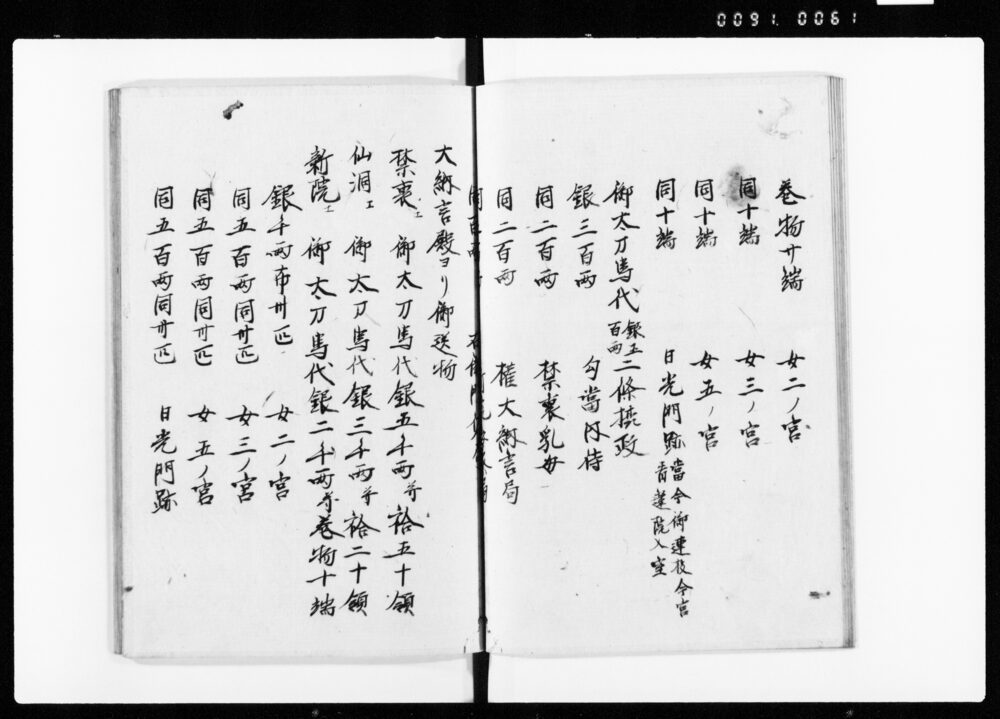 0091.0061
巻物廿端 女二ノ宮
同十端 女三ノ宮
同十端 女五ノ宮
同十端 日光門跡 當今御連枝今宮青蓮院入室
御太刀馬代 銀五百両 二條摂政
銀三百両 勾當内侍
同二百両 禁裏乳母
同二百両 権大納言局
同百両
大納言殿ヨリ御送物
禁裏エ 御太刀馬代銀五千両并袷五十領
仙洞エ 御太刀馬代銀三千両并袷二十領
新院エ 御太刀馬代銀二千両并巻物十端
銀千両布卅匹 女二ノ宮
同五百両同卅匹 女三ノ宮
同五百両同卅匹 女五ノ宮
同五百両同卅匹 日光門跡